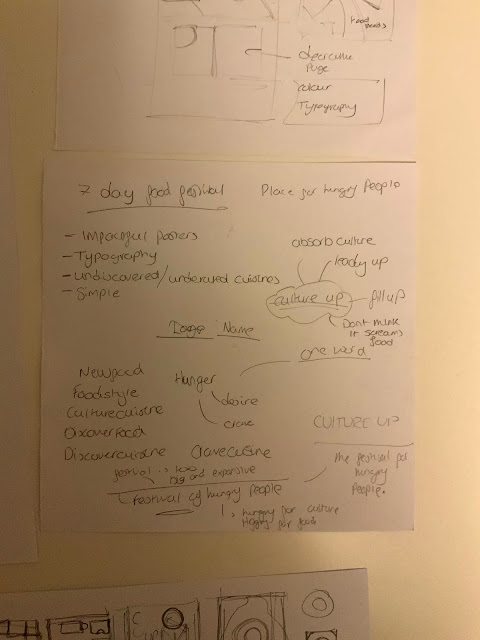 Food
decorative
Page
colour
Typography
7 day food festival
Place for hungry People
- Impactful posters
- Typography
- undiscovered/underrated cuisines
- Simple
absorb culture
ready up
culture up
fill up
Dont think
it screams
food
Image Name
one word
Newfood
Foodstyle
Culturecuisine
Discoverfood
Discovercuisine
Hunger
desire
crave
Cravecuisine
CULTURE UP
the festival for
hungry
People.
festival is too
big and expensive
Festival of hungry People
hungry for culture
Hungry for food